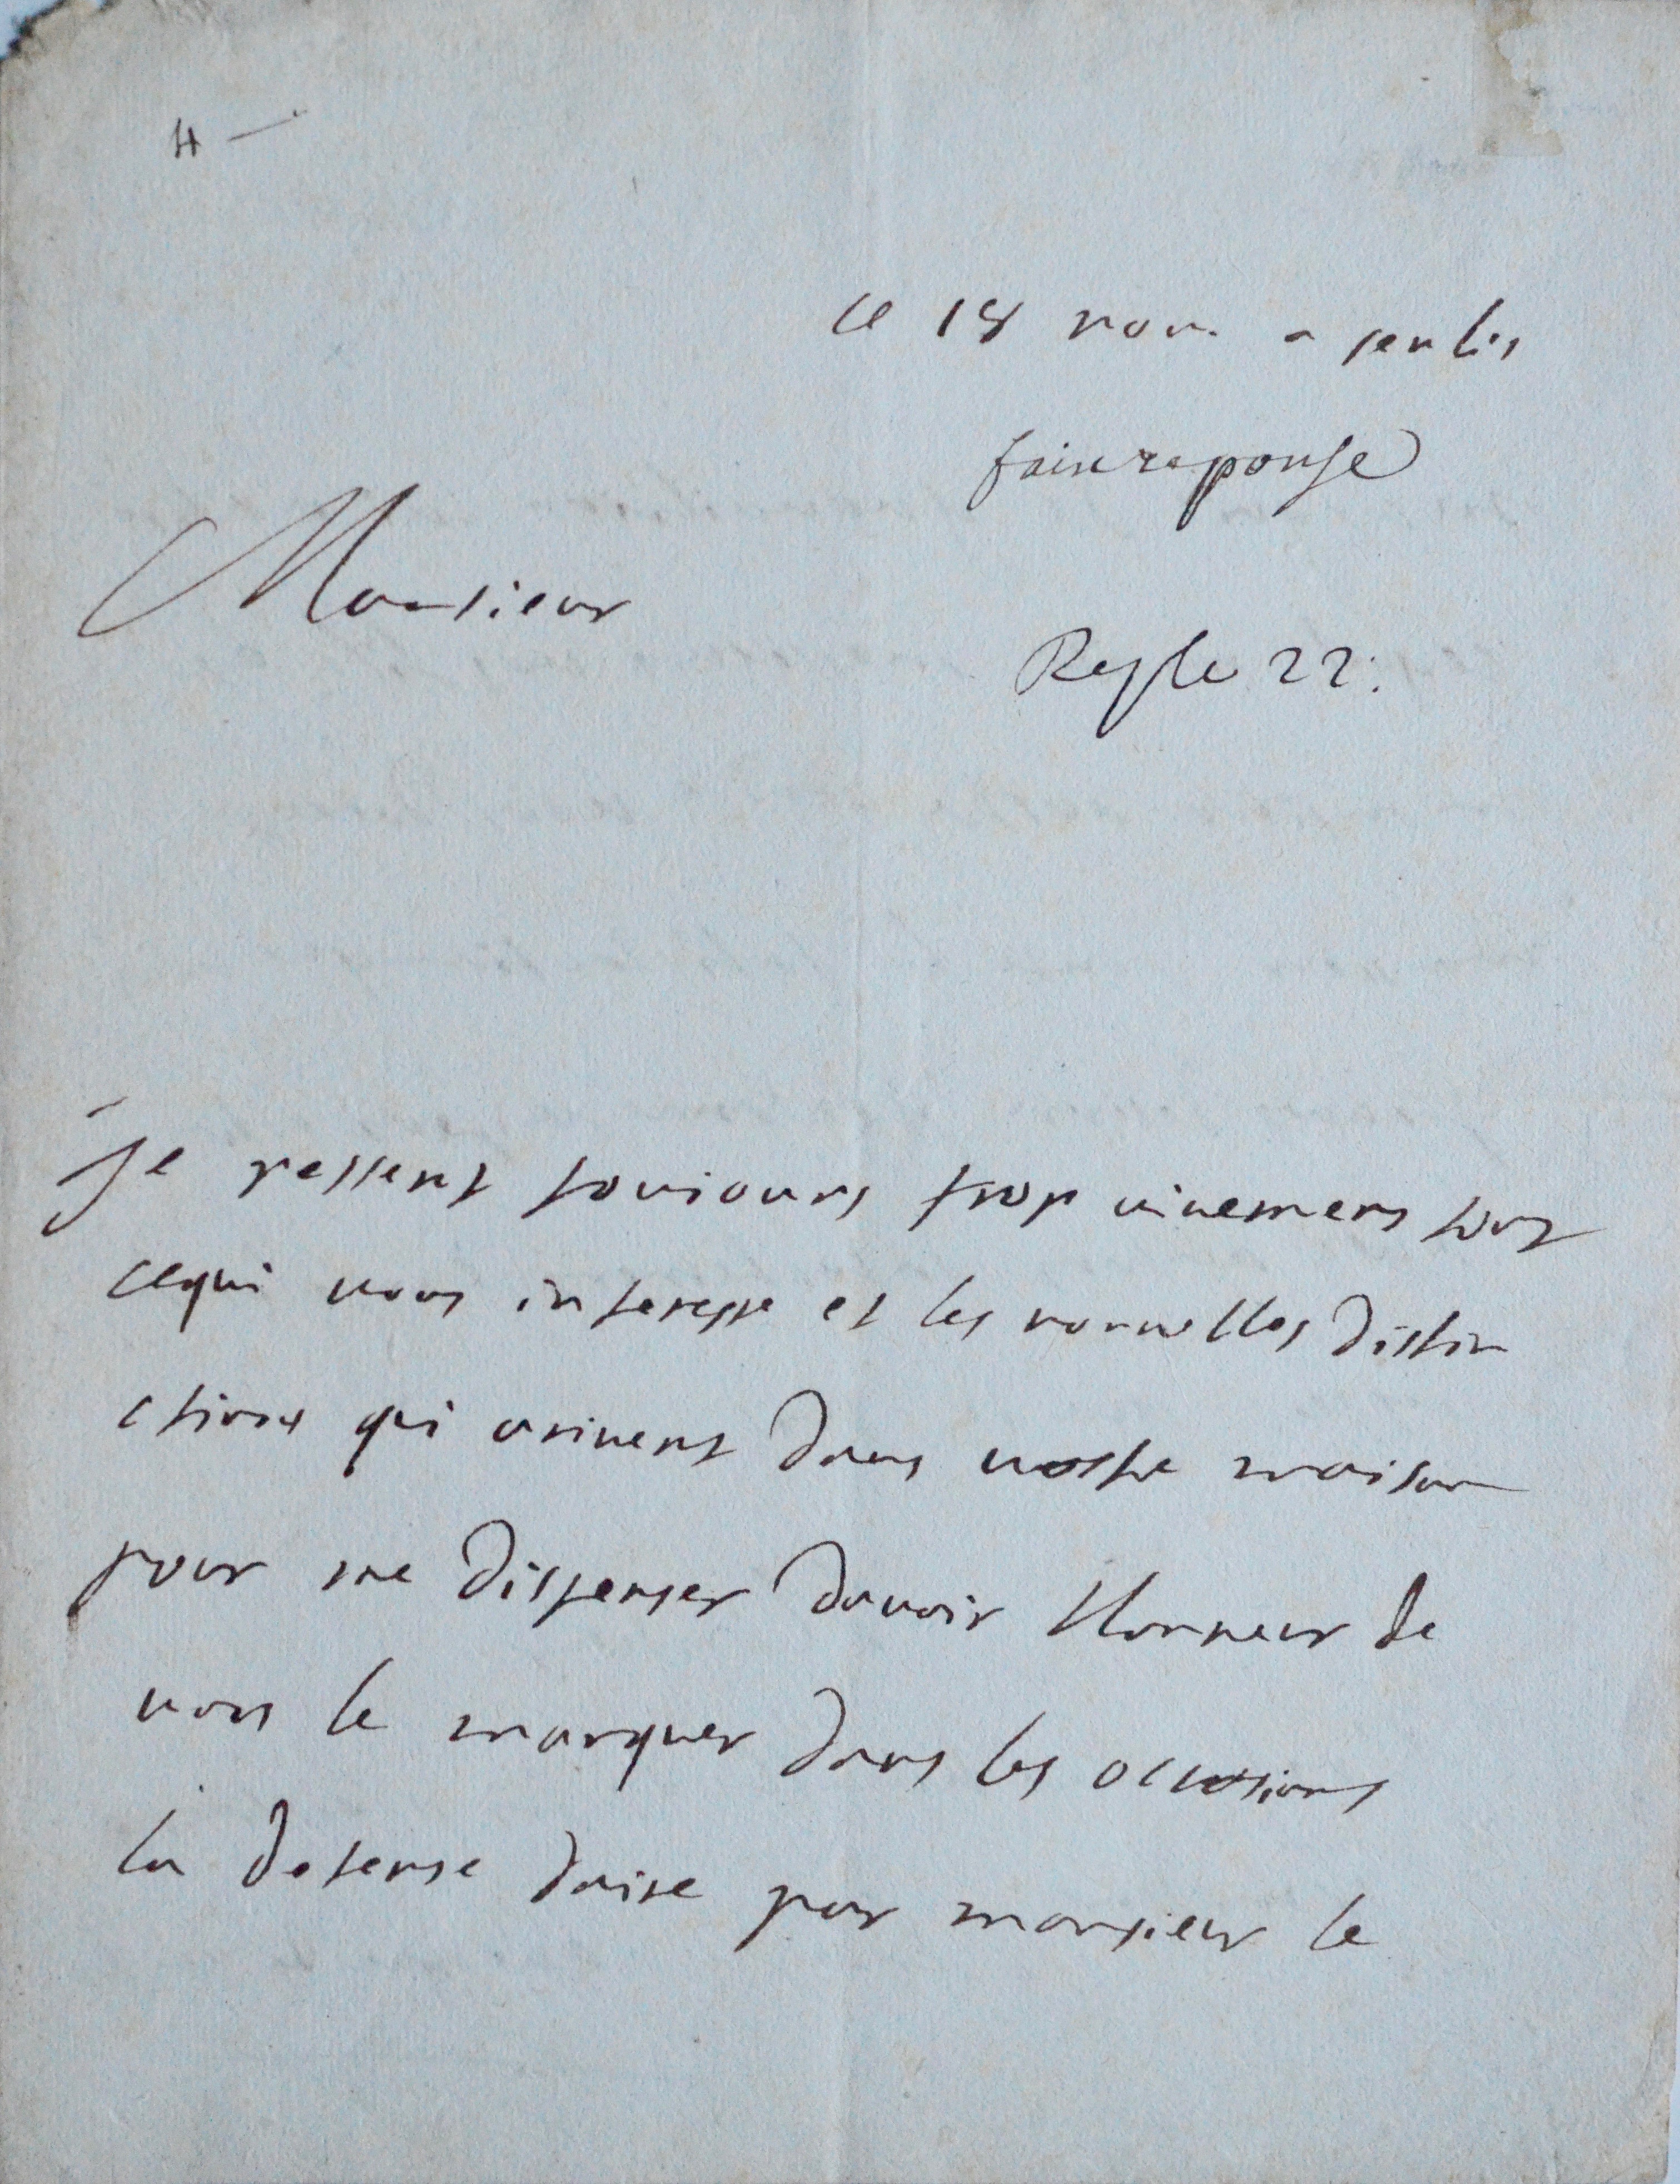 4 —
ce 18 nov. a senlis
faire reponse
Monsieur
Rep le 22.
Je ressens tousiours trop uiuement tout
cequi uous interesse et les nouuelles distin
ctions qui ariuent dans uostre maison
pour me dispenser dauoir lhonneur de
uous le marquer dans les occasions
la defense par monsieur le